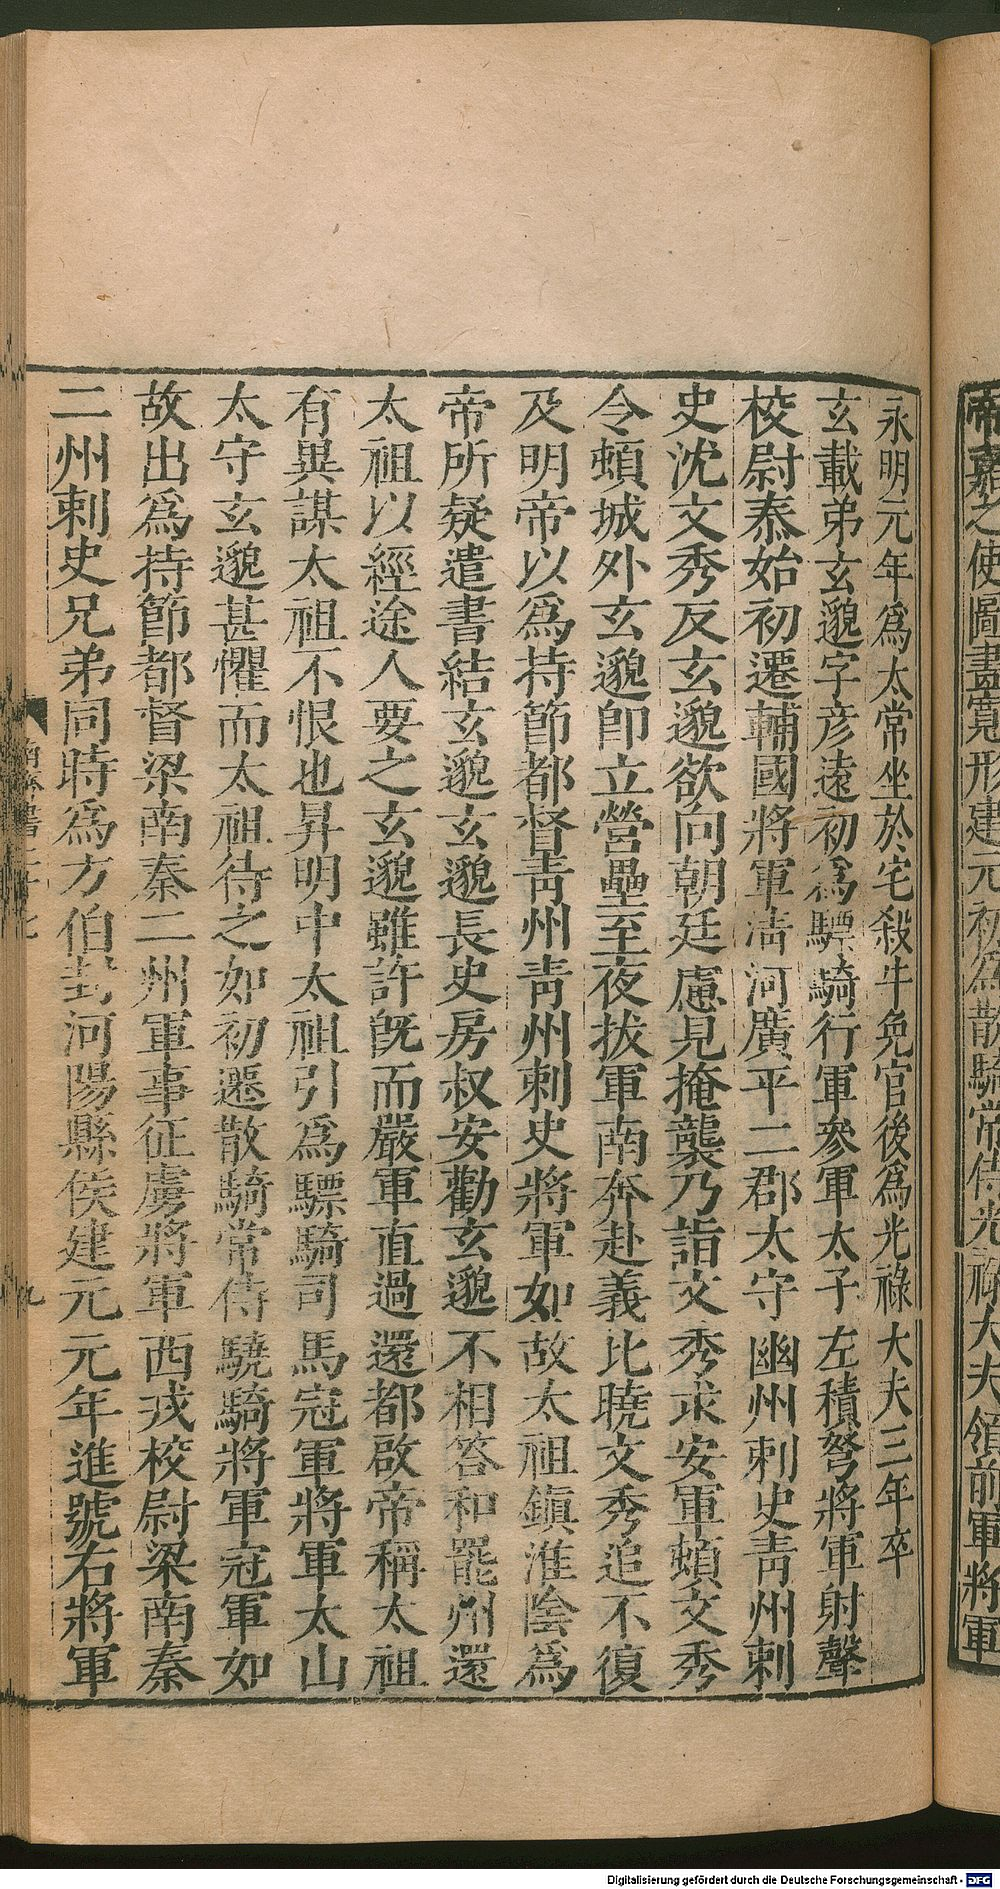 帝嘉之使圖畫寬形建元初爲散騎常侍光祿大夫領前軍將軍
永明元年爲太常坐於宅殺牛免官後爲光祿大夫三年卒
玄載弟玄邈字彥遠初爲驃騎行軍參軍太子左積弩將軍射聲
校尉泰始初遷輔國將軍淸河廣平二郡太守幽州刺史靑州刺
史沈文秀反玄邈欲向朝廷慮見掩襲乃詣文秀求安軍頓文秀
令頓城外玄邈卽立營壘至夜拔軍南奔赴義比曉文秀追不復
及明帝以爲持節都督靑州靑州刺史將軍如故太祖鎭淮陰爲
帝所疑遣書結玄邈玄邈長史房叔安勸玄邈不相答和罷州還
太祖以經途人要之玄邈雖許旣而嚴軍直過還都啟帝稱太祖
有異謀太祖不恨也昇明中太祖引爲驃騎司馬冠軍將軍太山
太守玄邈甚懼而太祖待之如初遷散騎常侍驍騎將軍冠軍如
故出爲持節都督梁南秦二州軍事征虜將軍西戎校尉梁南秦
二州刺史兄弟同時爲方伯封河陽縣侯建元元年進號右將軍
Digitalisierung gefördert durch die Deutsche Forschungsgemeinschaft - DFG